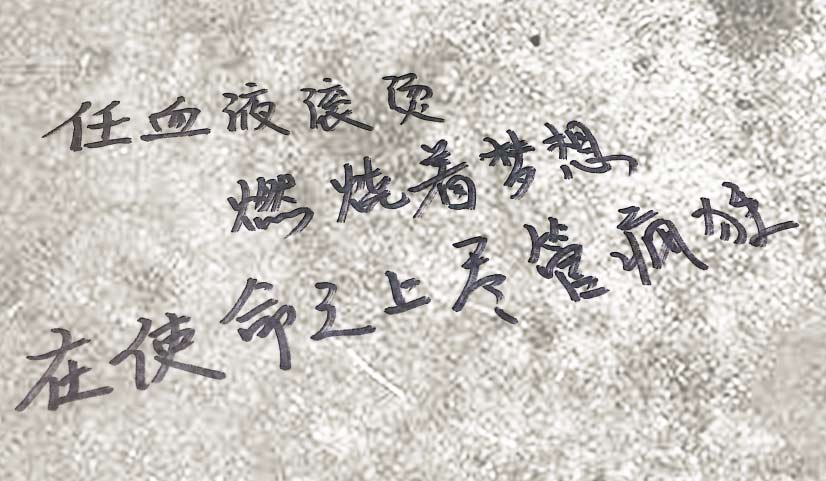 任血液滚烫
燃烧着梦想
在使命之上尽管疯狂